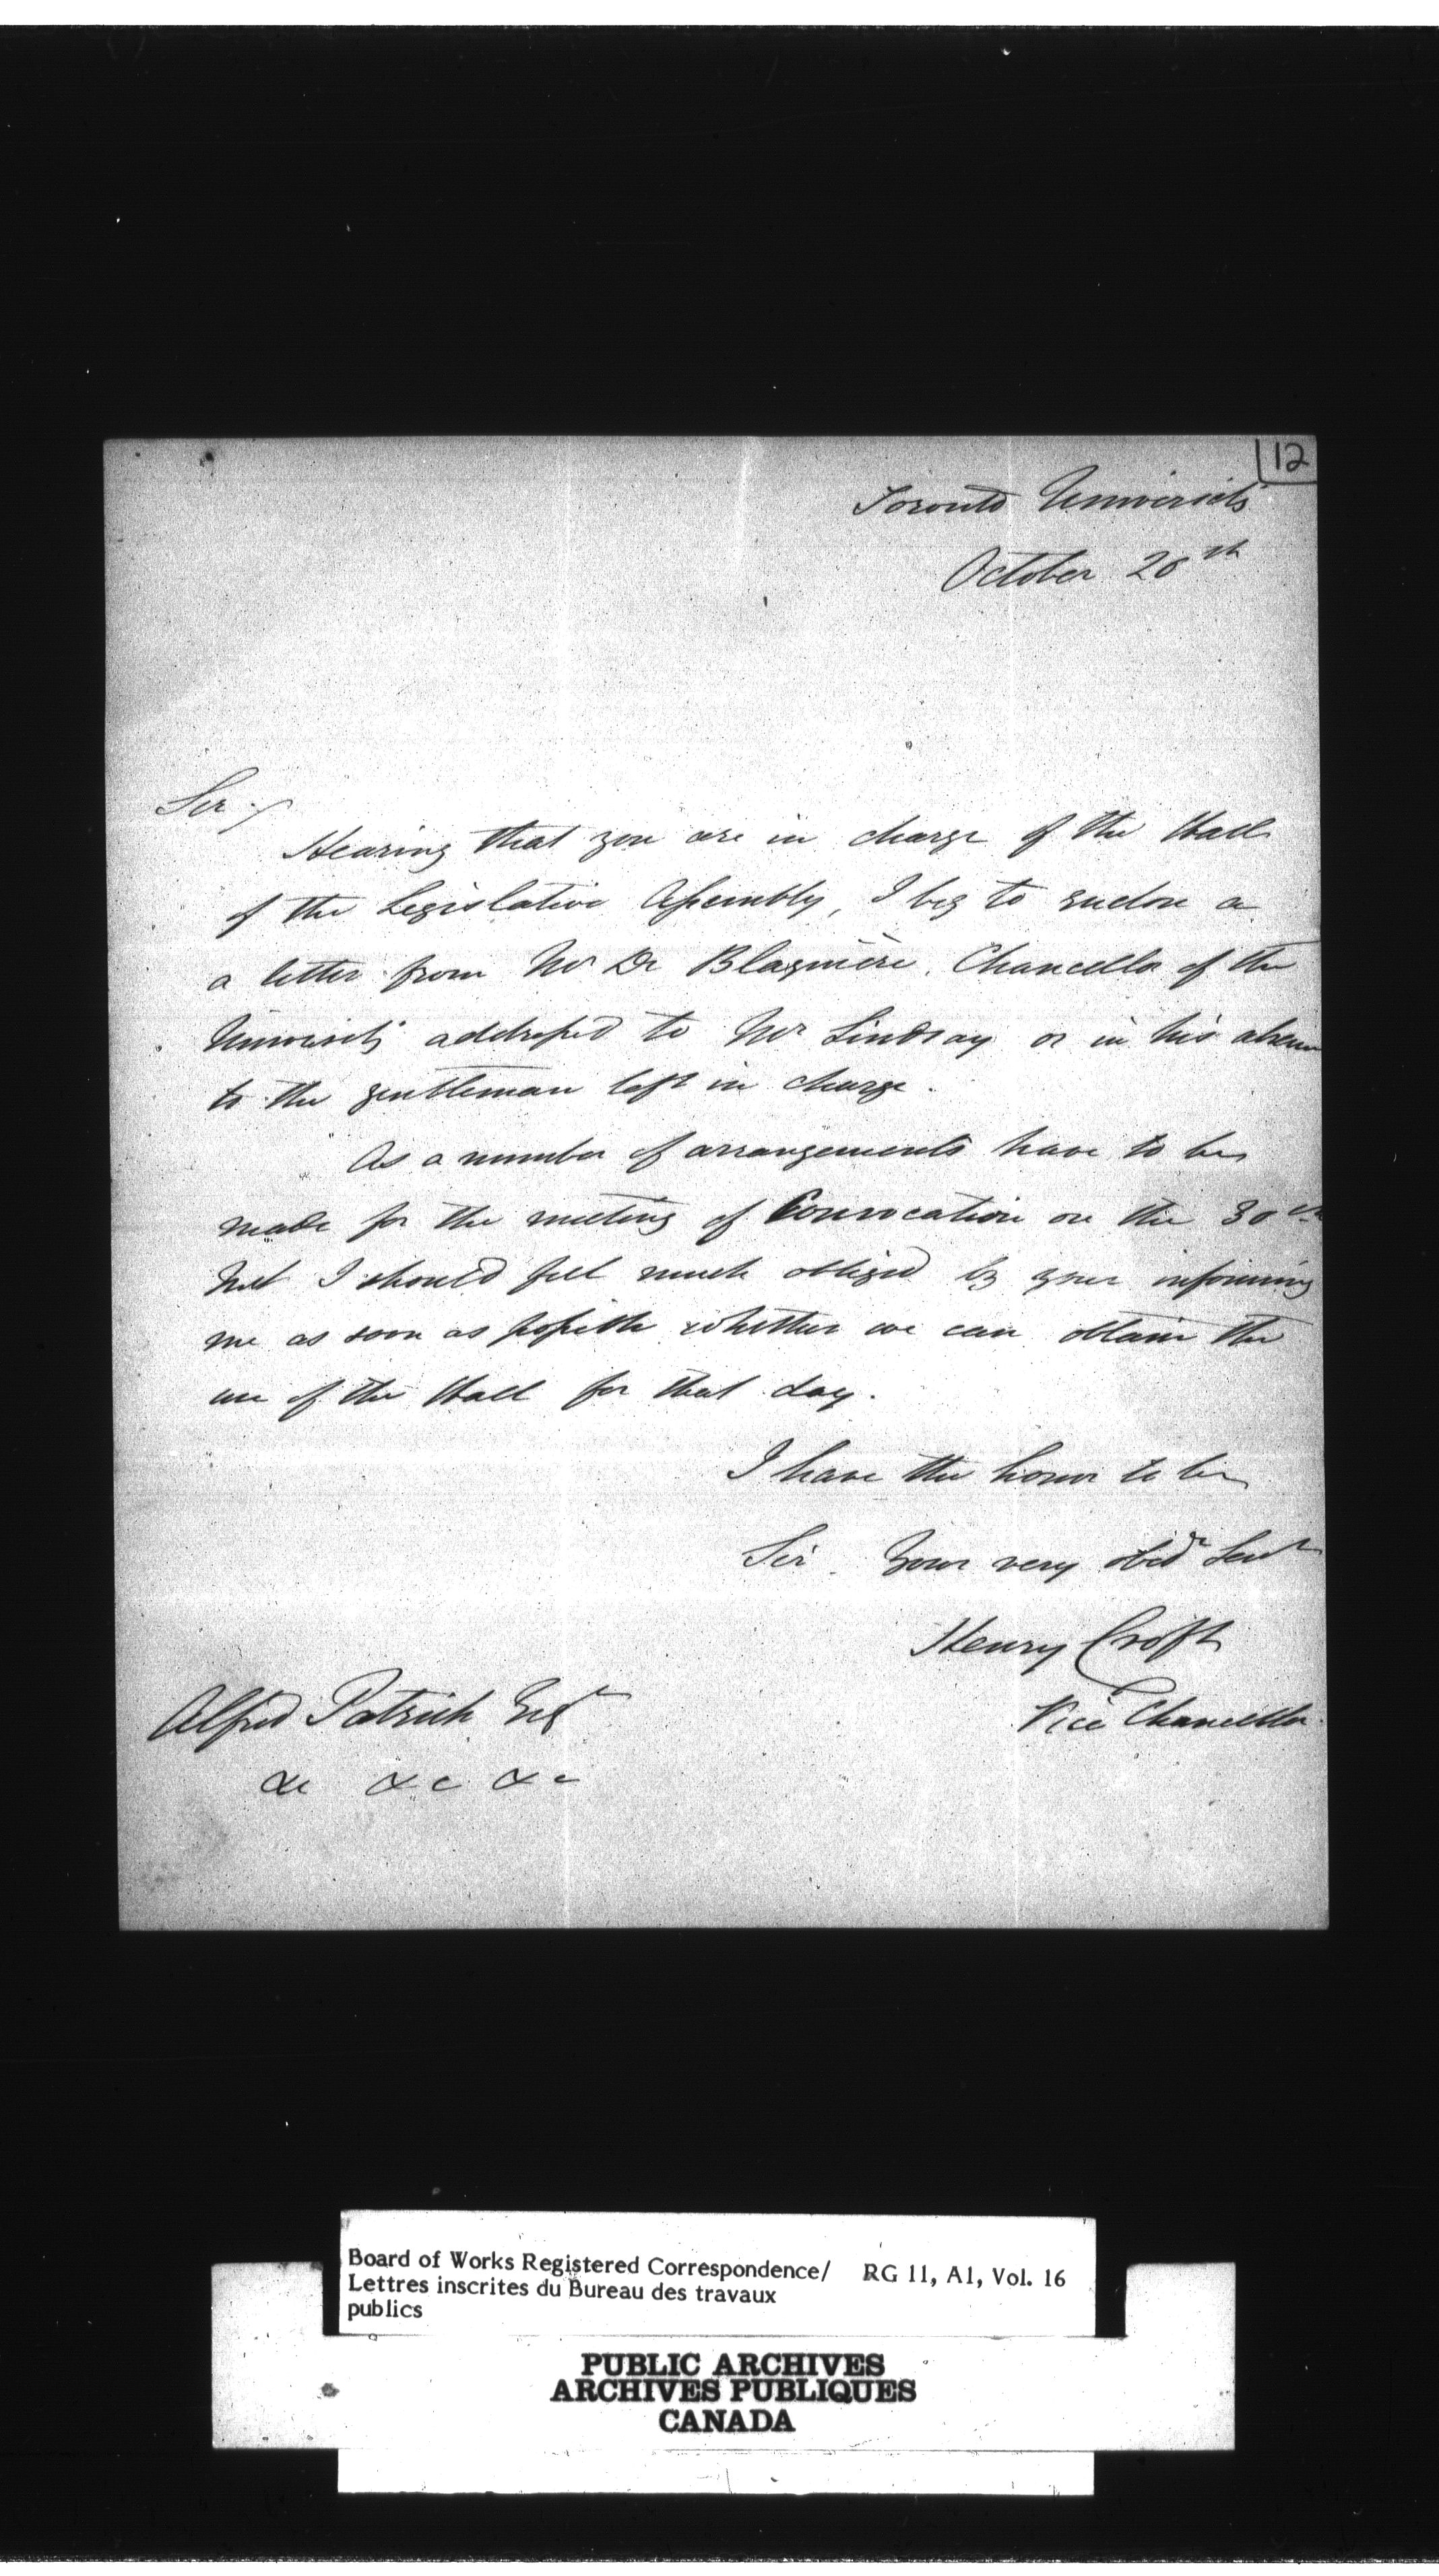 12
Toronto University
October 20th
Sir
Hearing that you are in charge of the Hall
of the Legislative Assembly, I beg to enclose a
a letter from Mr De Blaquière, Chancellor of the
University addressed to Mr Lindsay or in his absence
to the gentleman left in charge.
As a number of arrangements have to be
made for the meeting of Convocation on the 30th
I should feel much obliged by your informing
me as soon as possible whether we can obtain the
use of the Hall for that day.
I have the honor to be
Sir Your very obdt Servt
Henry Croft
Vice Chancellor.
Alfred Patrick Esqr
&c &c &c
Board of Works Registered Correspondence/ RG 11, A1, Vol. 16
Lettres inscrites du Bureau des travaux
publics
PUBLIC ARCHIVES
ARCHIVES PUBLIQUES
CANADA